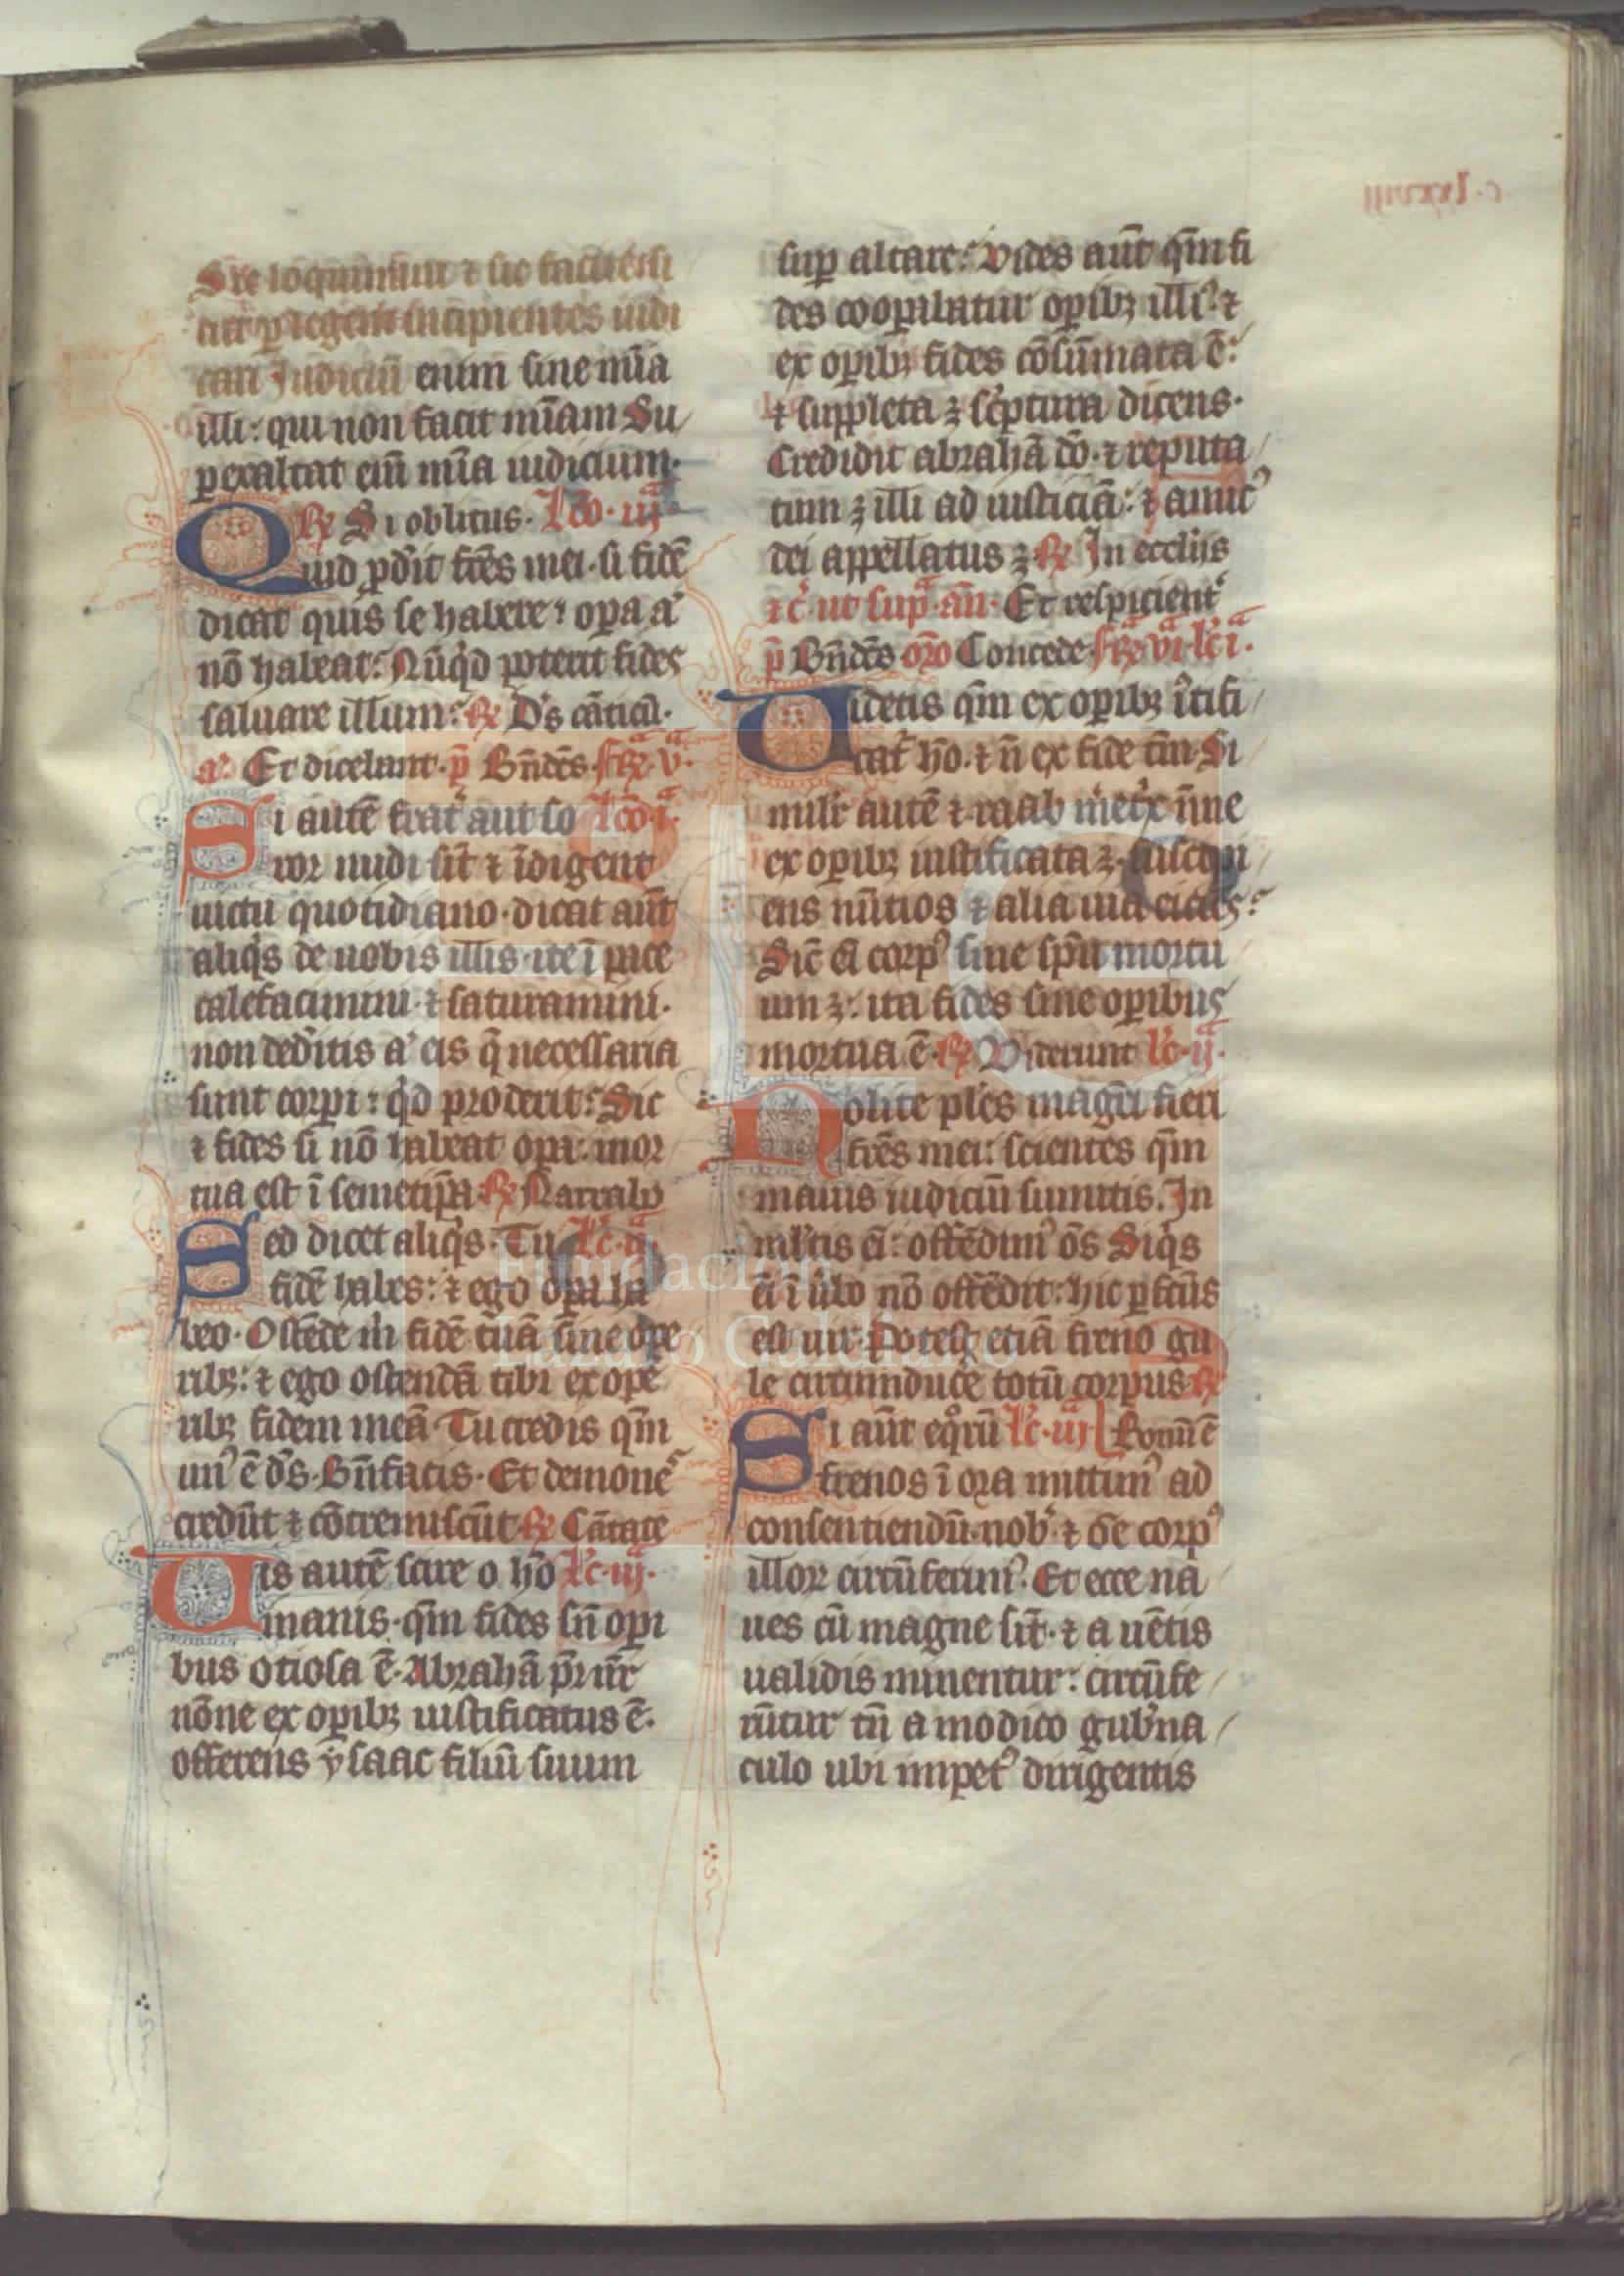 Sic loquimini ⁊ sic facite si
cut ꝑ legem incipientes iudi
cari Iudiciū enim sine mīa
illi: qui non facit mīam Su
ꝑexaltat em̄ mīa iudicium.
R̄ Si oblitus. lc̄o. iijᵃ
Quid ꝓdit fr̄es mei. si fidē
dicat quis se habere: oꝑa aͥ
nō habeat: Nūqͥd poterit fides
saluare illum: R̄ D's cātical.
aͣ. Et dicebant. p̄ Bn̄dc̄s. fr̄. vᵃ.
Si autē frat' aut so lc̄o. iᵃ.
ror nudi sīt ⁊ īdigent
uictu quotidiano. dicat aūt
aliqͥs de uobis illis. ite ī pace
calefacimini. ⁊ saturamini.
non ded'itis a' eis q̄ necessaria
sunt corpi: qͥd proderit: Sic
⁊ fides si nō habeat oꝑa: mor
tua est ī semetip̄a R̄ Narrabo
Sed dicet aliqͥs. Tu lc̄. ijᵃ.
fidē habes: ⁊ ego oꝑa ha
beo. Ostēde m̄ fidē tuā sine ope
ribꝫ: ⁊ ego ostendā tibi ex ope
ribꝫ fidem meā. Tu credis qm̄
un' ē d's. Bn̄ facis. Et demones
credūt ⁊ cōtremiscūt R̄ Cātate
Uis autē scire o hō lc̄. iijᵃ.
inanis. qm̄ fides sn̄ opi
bus otiosa ē. Abrahā pr̄ nr̄
nōne ex oꝑibꝫ iustificatus ē.
offerens ysaac filiū suum
suꝑ altare: Vides aūt qm̄ fi
des cooꝑabatur oꝑibꝫ illi': ⁊
ex oꝑibꝫ fides cōsūmata ē:
⁊ suppleta ꝫ sc'ptura dicens.
Credidit abrahā dō. ⁊ reputa
tum ꝫ illi ad iusticiā: ⁊ amic'
dei appellatus ꝫ R̄ In ecclijs
⁊c̄. ut supͣ. an̄. Et respicient
p̄ Bn̄dc̄s or̄o Concede fr̄. vi. lc̄. iᵃ.
Uidetis qm̄ ex oꝑibꝫ iustifi
cat' hō. ⁊ n̄ ex fide tm̄. Si
milit' autē ⁊ raab m'et'x n̄ne
ex oꝑibꝫ iustificata ꝫ. suscipi
ens nūtios ⁊ alia uia eiciēs:
Sic̄ ei corp' sine sp̄u mortu
um ꝫ: ita fides sine oꝑibus
mortua ē. R̄ Viderunt lc̄. ijᵃ.
Nolite pl'es magr̄i fieri
fr̄es mei: scientes qm̄
maius iudiciū sumitis. In
ml'tis ei: offēdim' ōs Siqͥs
ei ī ūbo nō offēdit: hic ꝑfcūs
est uir. Potest etiā freno gu
le circumduce totū corpus R̄
Si aūt eqͦrū lc̄. iijᵃ Bonū ē
frenos ī ora mittim' ad
consentiendū nob'. ⁊ o'e corp'
illor circūferim'. Et ecce na
ues cū magne sīt. ⁊ a uētis
ualidis minentur: circūfe
rūtur tn̄ a modico gub'na
culo ubi impet' dirigentis
c. lxxviij
Fundación
Lázaro Galdiano